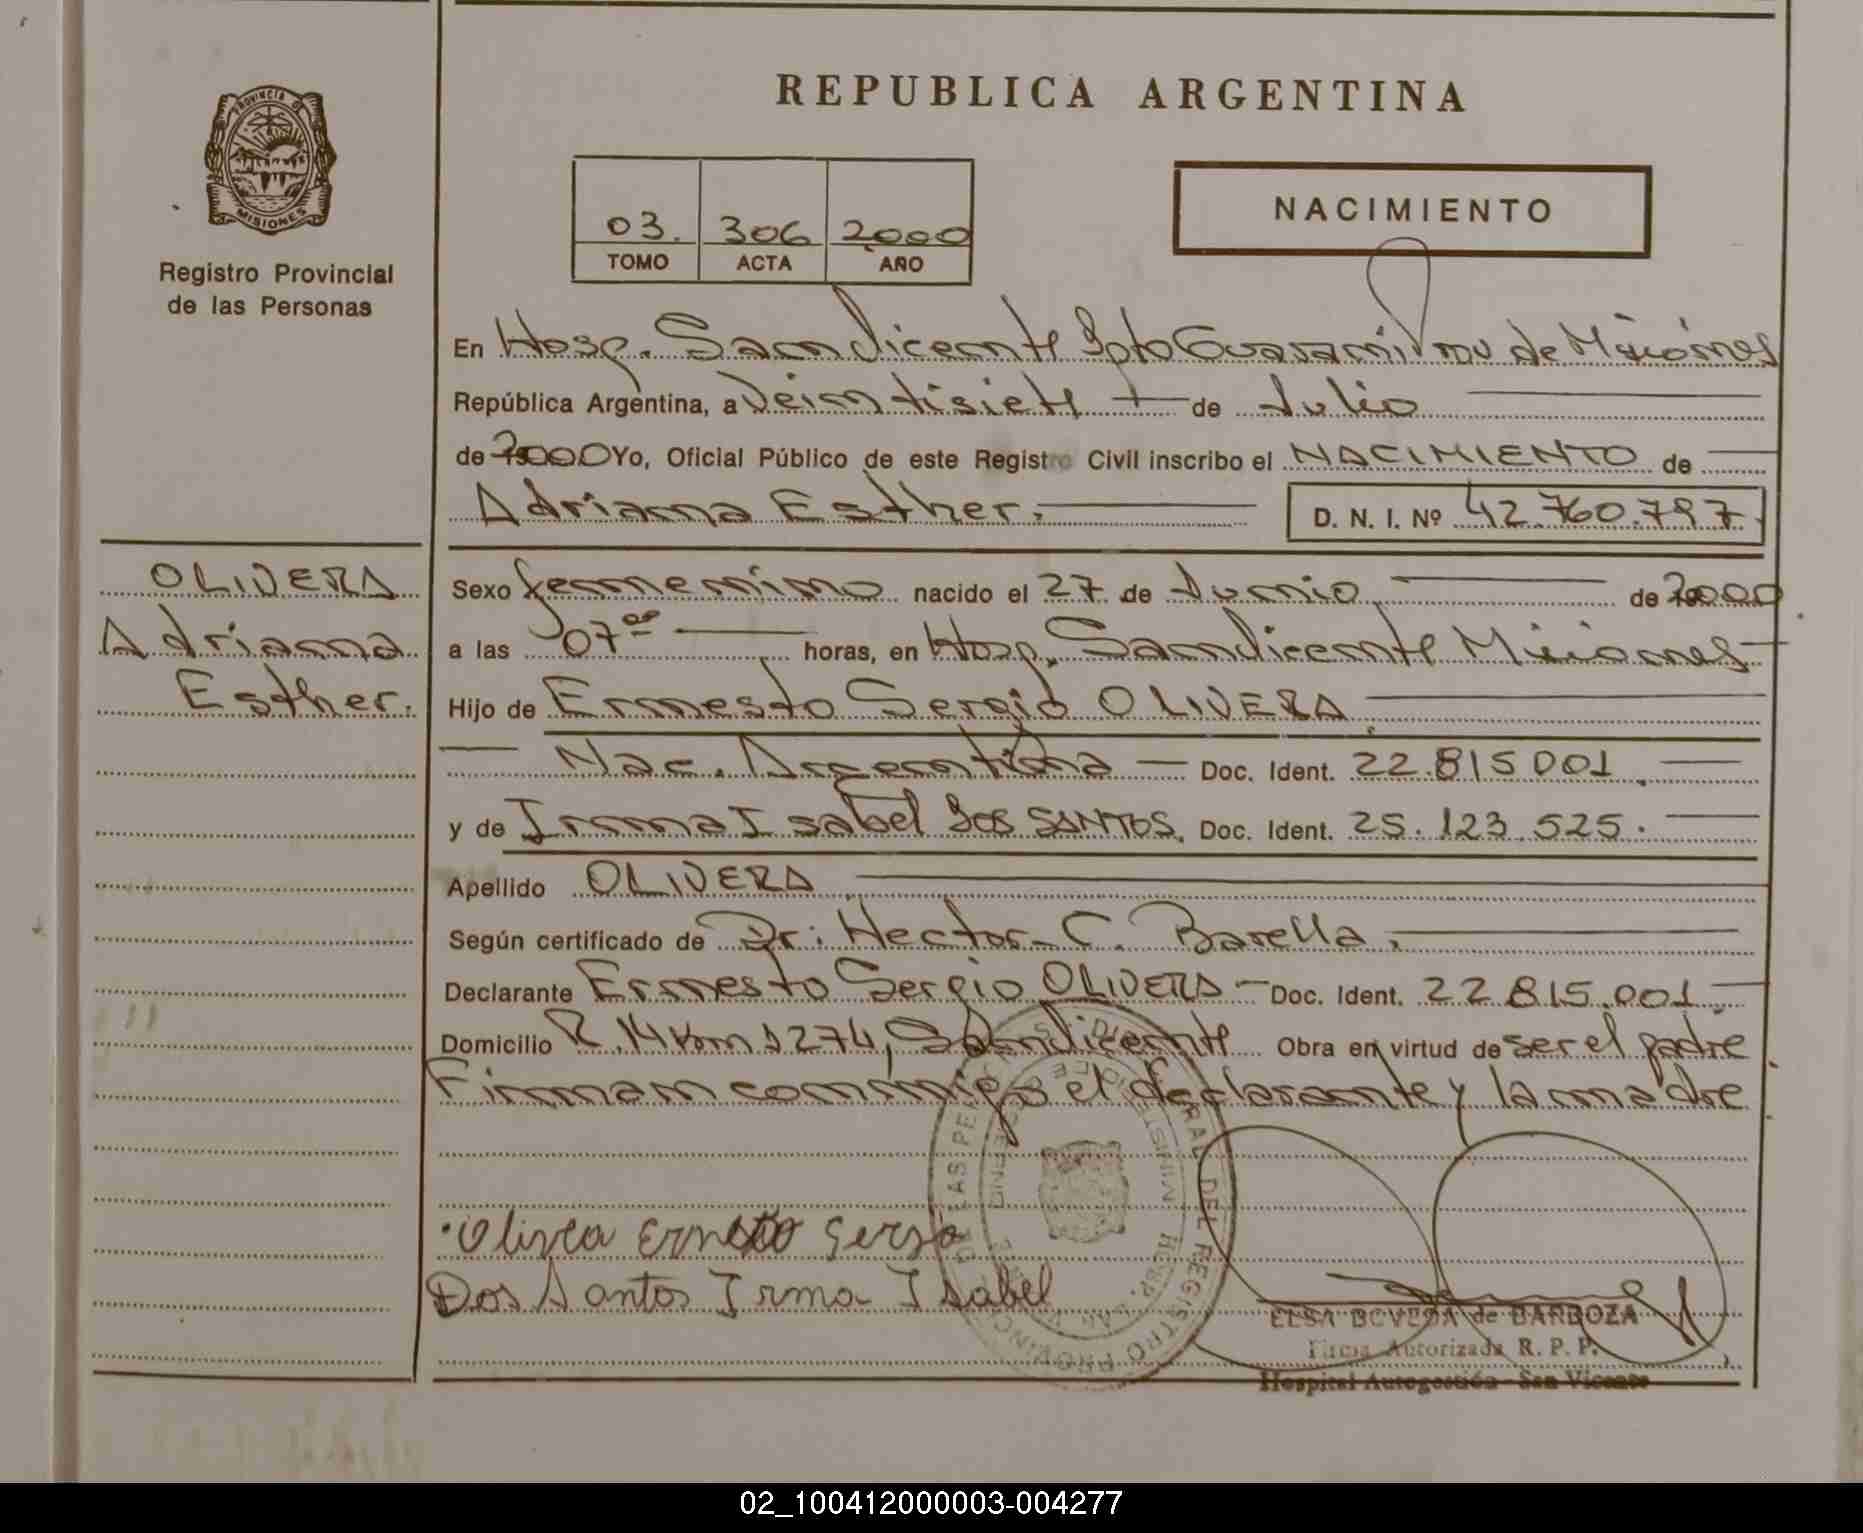 REPUBLICA ARGENTINA
PROVINCIA DE
MISIONES
Registro Provincial
de las Personas
03. 306 2000
TOMO ACTA AÑO
NACIMIENTO
En Hosp. San Vicente Dpto Guaraní Prov de Misiones
República Argentina, a Veintisiete de Julio
de 2000 Yo, Oficial Público de este Registro Civil inscribo el NACIMIENTO de
Adriana Esther. D. N. I. Nº 42.760.797.
OLIVERA
Adriana
Esther.
Sexo femenino nacido el 27 de Junio de 2000
a las 07 00 horas, en Hosp. San Vicente Misiones
Hijo de Ernesto Sergio OLIVERA
Nac. Argentina Doc. Ident. 22.815.001.
y de Irma Isabel DOS SANTOS. Doc. Ident. 25.123.525.
Apellido OLIVERA
Según certificado de Dr: Hector C. Barella.
Declarante Ernesto Sergio OLIVERA Doc. Ident. 22.815.001
Domicilio R.14 Km 1274, San Vicente Obra en virtud de ser el padre
Firman conmigo el declarante y la madre
Olivea Ernesto Sergio
Dos Santos Irma Isabel
ELSA BOVEDA de BARBOZA
Firma Autorizada R. P. P.
Hospital Autogestión - San Vicente
02_100412000003-004277